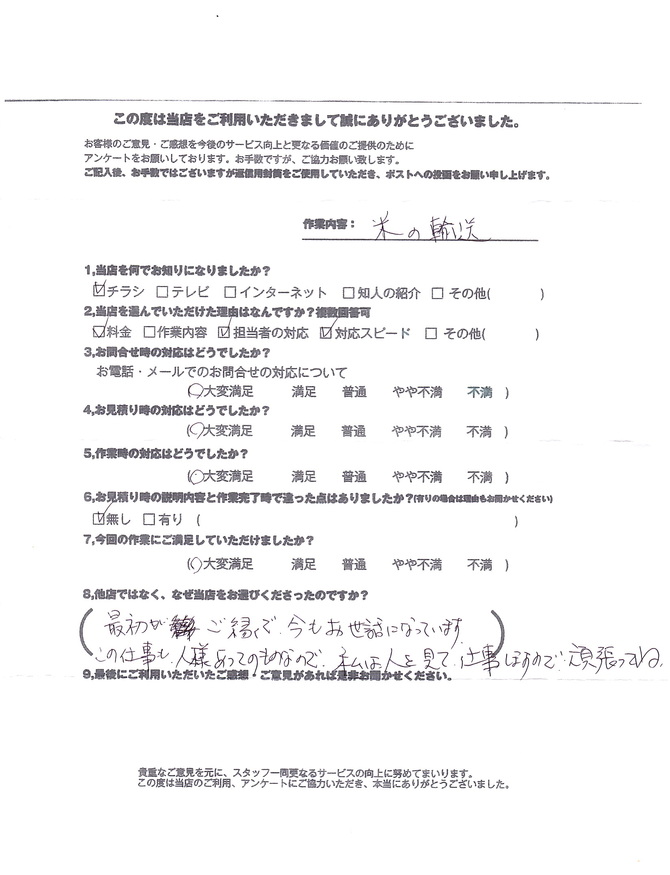 この度は当店をご利用いただきまして誠にありがとうございました。
お客様のご意見・ご感想を今後のサービス向上と更なる価値のご提供のために
アンケートをお願いしております。お手数ですが、ご協力お願い致します。
ご記入後、お手数ではございますが返信用封筒をご使用していただき、ポストへの投函をお願い申し上げます。
作業内容： 米の輸送
1,当店を何でお知りになりましたか？
☑チラシ □テレビ □インターネット □知人の紹介 □その他( )
2,当店を選んでいただけた理由はなんですか？複数回答可
☑料金 □作業内容 ☑担当者の対応 ☑対応スピード □その他( )
3,お問合せ時の対応はどうでしたか？
お電話・メールでのお問合せの対応について
(○大変満足 満足 普通 やや不満 不満 )
4,お見積り時の対応はどうでしたか？
(○大変満足 満足 普通 やや不満 不満 )
5,作業時の対応はどうでしたか？
(○大変満足 満足 普通 やや不満 不満 )
6,お見積り時の説明内容と作業完了時で違った点はありましたか？(有りの場合は理由もお聞かせください)
☑無し □有り ( )
7,今回の作業にご満足していただけましたか？
(○大変満足 満足 普通 やや不満 不満 )
8,他店ではなく、なぜ当店をお選びくださったのですか？
(最初が ご縁で、今もお世話になっています)
この仕事も、人様あってのものなので、私は人を見て、仕事しますので、頑張ってね
9,最後にご利用いただいたご感想・ご意見があれば是非お聞かせください。
貴重なご意見を元に、スタッフ一同更なるサービスの向上に努めてまいります。
この度は当店のご利用、アンケートにご協力いただき、本当にありがとうございました。